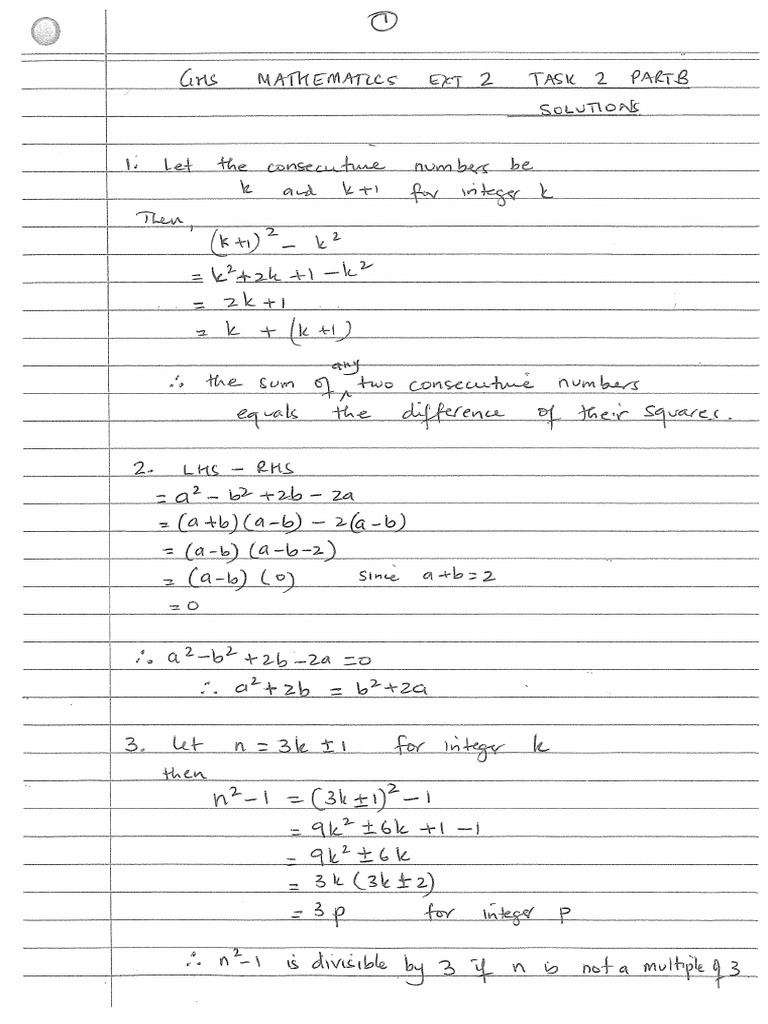 1
GHS MATHEMATICS EXT 2 TASK 2 PART B
SOLUTIONS
1. Let the consecutive numbers be
k and k+1 for integer k
Then,
(k+1)² - k²
= k²+2k+1-k²
= 2k+1
= k + (k+1)
∴ the sum of any two consecutive numbers
equals the difference of their squares.
2. LHS - RHS
= a² - b² + 2b - 2a
= (a+b)(a-b) - 2(a-b)
= (a-b)(a-b-2)
= (a-b)(0) since a+b=2
= 0
∴ a²-b²+2b-2a=0
∴ a²+2b = b²+2a
3. Let n = 3k±1 for integer k
then
n²-1 = (3k±1)²-1
= 9k²±6k+1-1
= 9k²±6k
= 3k(3k±2)
= 3p for integer p
∴ n²-1 is divisible by 3 if n is not a multiple of 3